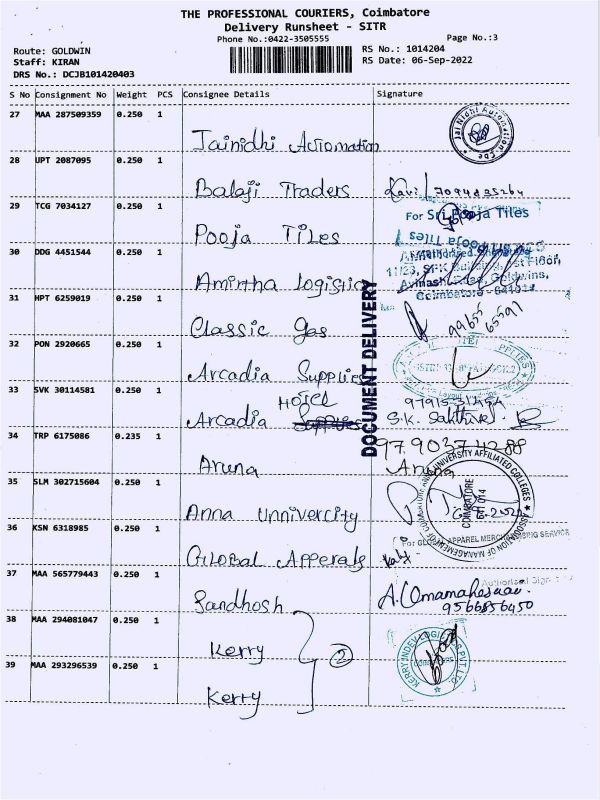 THE PROFESSIONAL COURIERS, Coimbatore
Delivery Runsheet - SITR
Phone No.:0422-3505555
Page No.:3
Route: GOLDWIN
RS No.: 1014204
Staff: KIRAN
RS Date: 06-Sep-2022
DRS No.: DCJB101420403
S No Consignment No Weight PCS Consignee Details Signature
27 MAA 287509359 0.250 1
Jainidhi Automation
28 UPT 2087095 0.250 1
Balaji Traders
29 TCG 7034127 0.250 1
For Sri Pooja Tiles
Pooja Tiles
30 DDG 4451544 0.250 1
Amirtha Logistics
31 HPT 6259019 0.250 1
Classic Gas
99655 65591
32 PON 2920665 0.250 1
Arcadia Supplies
33 SVK 30114581 0.250 1
Hotel
Arcadia
S.K. Sakthivel
34 TRP 6175086 0.235 1
Aruna
Aruna
35 SLM 302715604 0.250 1
Anna Unnivercity
36 KSN 6318985 0.250 1
Global Apperals
For GLOBAL APPAREL MERCHANDISING SERVICE
37 MAA 565779443 0.250 1
Sandhosh
9566856450
38 MAA 294081047 0.250 1
Kerry
2
39 MAA 293296539 0.250 1
Kerry
DOCUMENT DELIVERY